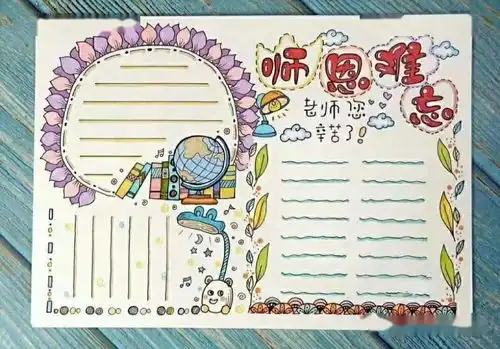 师恩难忘
老师您
辛苦了!